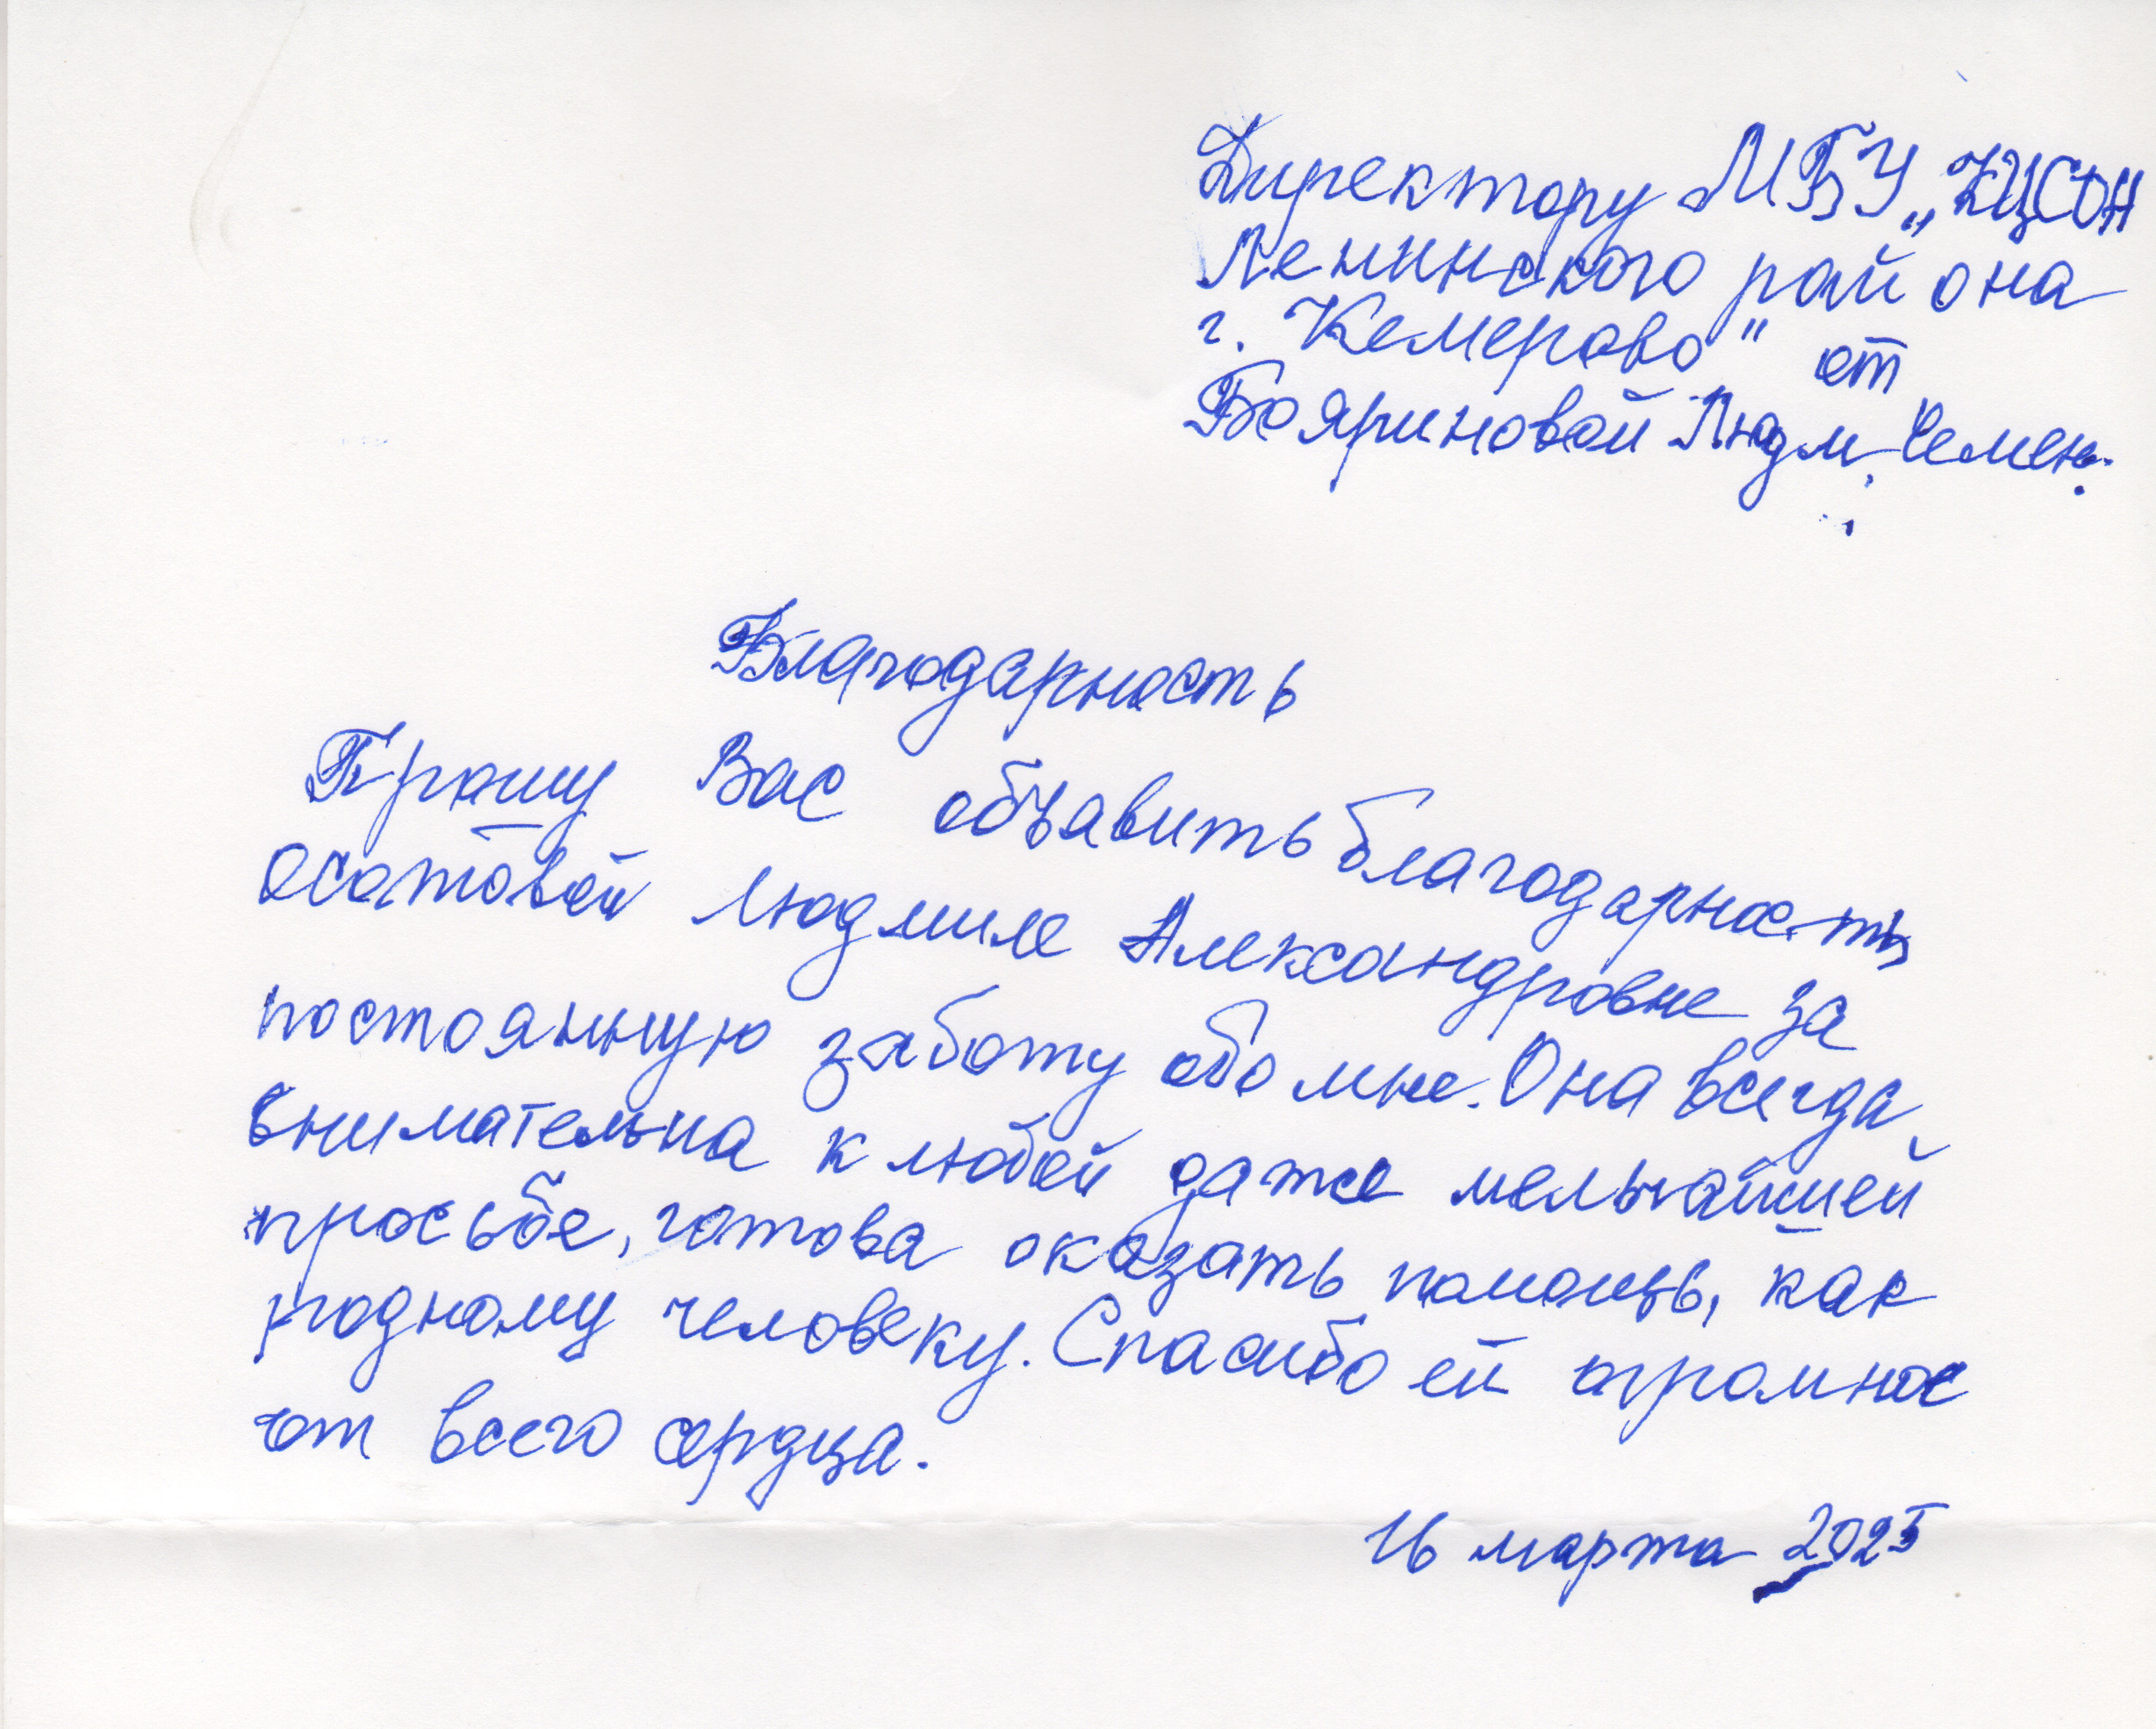 Директору МБУ „КЦСОН
Ленинского района
г. Кемерово" от
Бояриновой Людм. Семен.
Благодарность
Прошу Вас объявить благодарность
Осатовой Людмиле Александровне за
постоянную заботу обо мне. Она всегда
внимательна к любой даже мельчайшей
просьбе, готова оказать помощь, как
родному человеку. Спасибо ей огромное
от всего сердца.
16 марта 2025